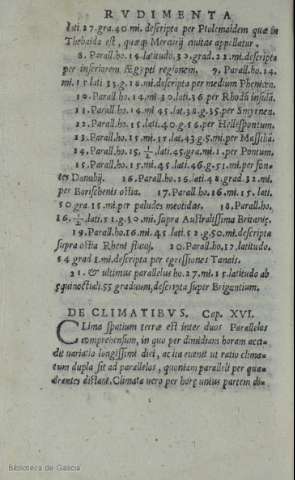 RVDIMENTA
lati 27.gra.40 mi. descripta per Ptolemaidem quæ in
Thebaida est, quæq; Mercurij ciuitas appellatur.
8. Parall.ho.14.latitudo.30.grad.22.mi.descripta
per inferiorem Ægypti regionem. 9. Parall.ho.14.
mi.15 lati 33.g.18.mi.descripta per medium Phenicen.
10. Parall.ho.14.mi.30.lati.36 per Rhodū insulā.
11. Parall.ho.14.mi 45 lat.38.g.35.per Smyrnea.
12. Parall.ho.15.lati.40.g.56.per Hellespontum.
13. Parall.ho.15.mi.15.lat.43 g.5.mi.per Massiliā.
14. Parall.ho.15.½.lati.45.gra.mi.1.per Pontum.
15. Parall.ho.15.mi.45.lati.46.g.51.mi.per fon-
tes Danubij. 16. Parall.ho.16.lati.48.grad.32.mi.
per Boristhenis ostia. 17. Parall.ho.16.mi.15.lati.
50 gra 15.mi.per paludes meotidas. 18. Parall.ho.
16.½.lati.51.g.30.mi.supra Australissima Britanię.
19. Parall.ho.16.mi.45.lati 52.g.50.mi.descripta
supra ostia Rheni fluuij. 20. Parall.ho.17.latitudo.
54 grad 1.mi.descripta per egressiones Tanais.
21. & ultimus parallelus ho.17.mi.15.latitudo ab
ęquinoctiali.55 graduum, descripta super Brigantium.
DE CLIMATIBVS. Cap. XVI.
CLima spatium terræ est inter duos Parallelos
comprehensum, in quo per dimidiam horam acci-
dit uariatio longissimi diei, ac ita euenit ut ratio clima-
tum dupla sit ad parallelos, quoniam paralleli per qua-
drantes distant. Climata uero per horę unius partem di-
Biblioteca de Galicia